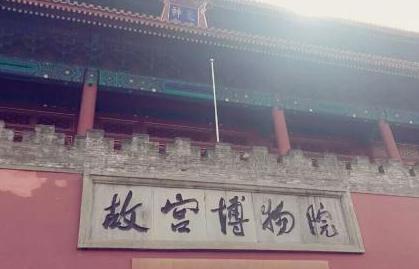 神武門
故宫博物院